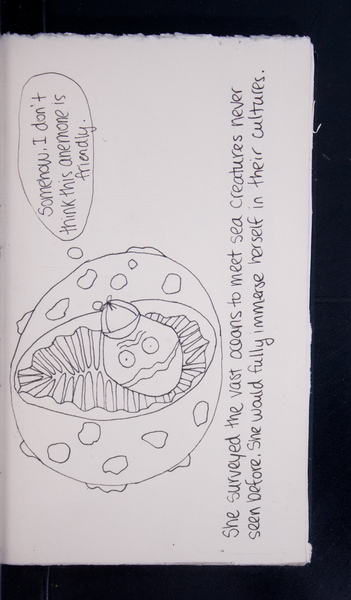 Somehow, I don't
think this anemone is
friendly.
She surveyed the vast oceans to meet sea creatures never
seen before. She would fully immerse herself in their cultures.